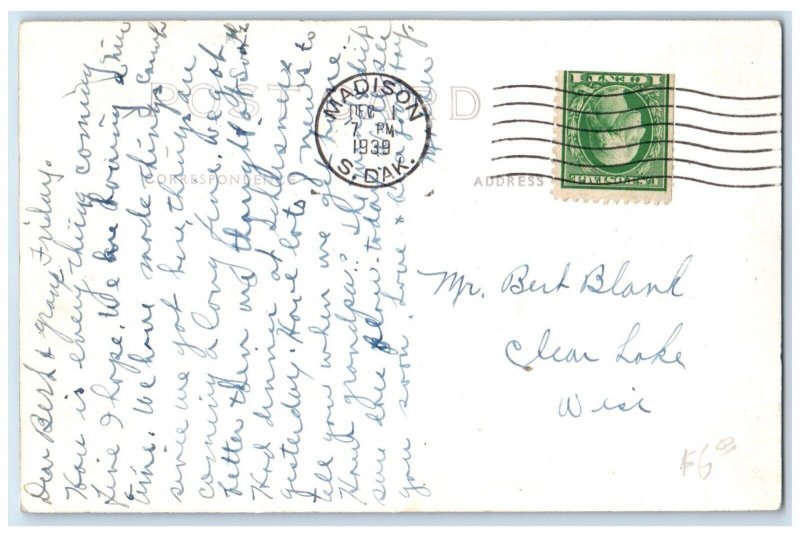 POST CARD
CORRESPONDENCE
ADDRESS
MADISON
DEC 1
7 PM
1939
S. DAK.
1 CENT 1
U.S. POSTAGE
Mr. Bert Blank
Clear Lake
Wisc
$6
Friday.
Dear Bert &
How is everything coming
fine I hope. We are having a fine
time. We have made things
since we got here, things are
coming along fine. We got
better than we thought of
Had dinner at
yesterday. Have lots of news to
tell you when we get home.
How's grandpa?
sure slow today. see
you soon. Love &